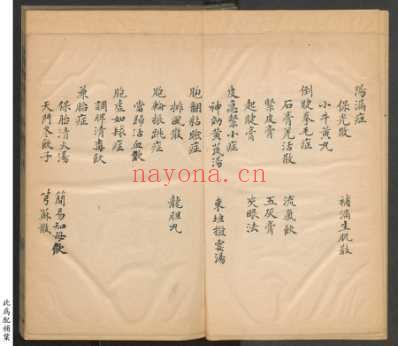 陽漏症
保光散　補漏生肌散
小牛黃丸
倒睫拳毛症
石膏羌活散　流氣飲
緊皮膏　五灰膏
起睫膏　夾眼法
皮急緊小症
神効黃芪湯　東垣撥雲湯
胞翻粘瞼症
排風散　龍胆丸
胞輪振跳症
當歸活血散
胞虛如球症
調脾清毒飲
兼胎症
保胎清火湯　簡易知母飲
天門冬飲子　芎蘇散
此爲配補葉
nayona.cn